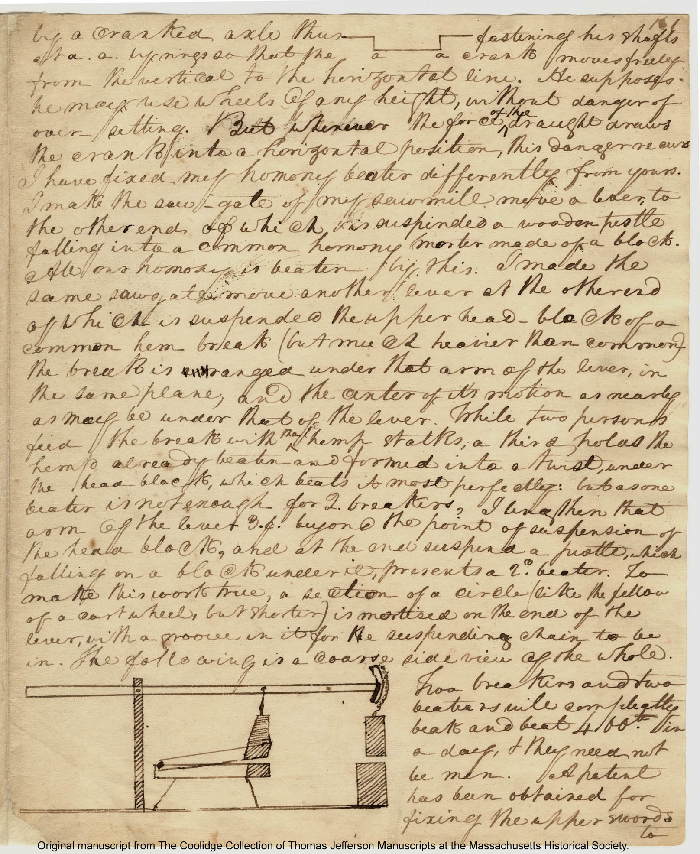 161
by a cranked axle thus fastening his shafts
at a. a. by rings so that the a a crank moves freely
from the vertical to the horizontal line. He supposes
he may use wheels of any height, without danger of
over setting. But whenever the force of the draught draws
the crank into a horizontal position, this danger recurs
I have fixed my homony beater differently from yours.
I make the saw-gate of my sawmill move a lever, to
the other end of which, is suspended a wooden pestle
falling into a common homony morter made of a block.
All our homony is beaten by this. I made the
same saw gate move another lever at the other end
of which is suspended the upper head-block of a
common hemp break (but much heavier than common)
the break is arranged under that arm of the lever, in
the same plane, and the center of it's motion as nearly
as may be under that of the lever. While two persons
feed the break with the hemp stalks, a third holds the
hemp already beaten and formed into a twist, under
the head block, which beats it most perfectly: but as one
beater is not enough for 2. breakers, I lengthen that
arm of the lever 3. f. beyond the point of suspension of
the head block, and at the end suspend a pestle, which
falling on a block under it, presents a 2d. beater. To
make this work true, a section of a circle (like the fellow
of a cart wheel, but shorter) is mortised on the end of the
lever, with a groove in it for the suspending chain to lie
in. The following is a coarse side view of the whole.
Two breakers and two
beaters will compleatly
beak and beat 400 lb. in
a day, & they need not
be men. A patent
has been obtained for
fixing the upper swords
to
Original manuscript from The Coolidge Collection of Thomas Jefferson Manuscripts at the Massachusetts Historical Society.